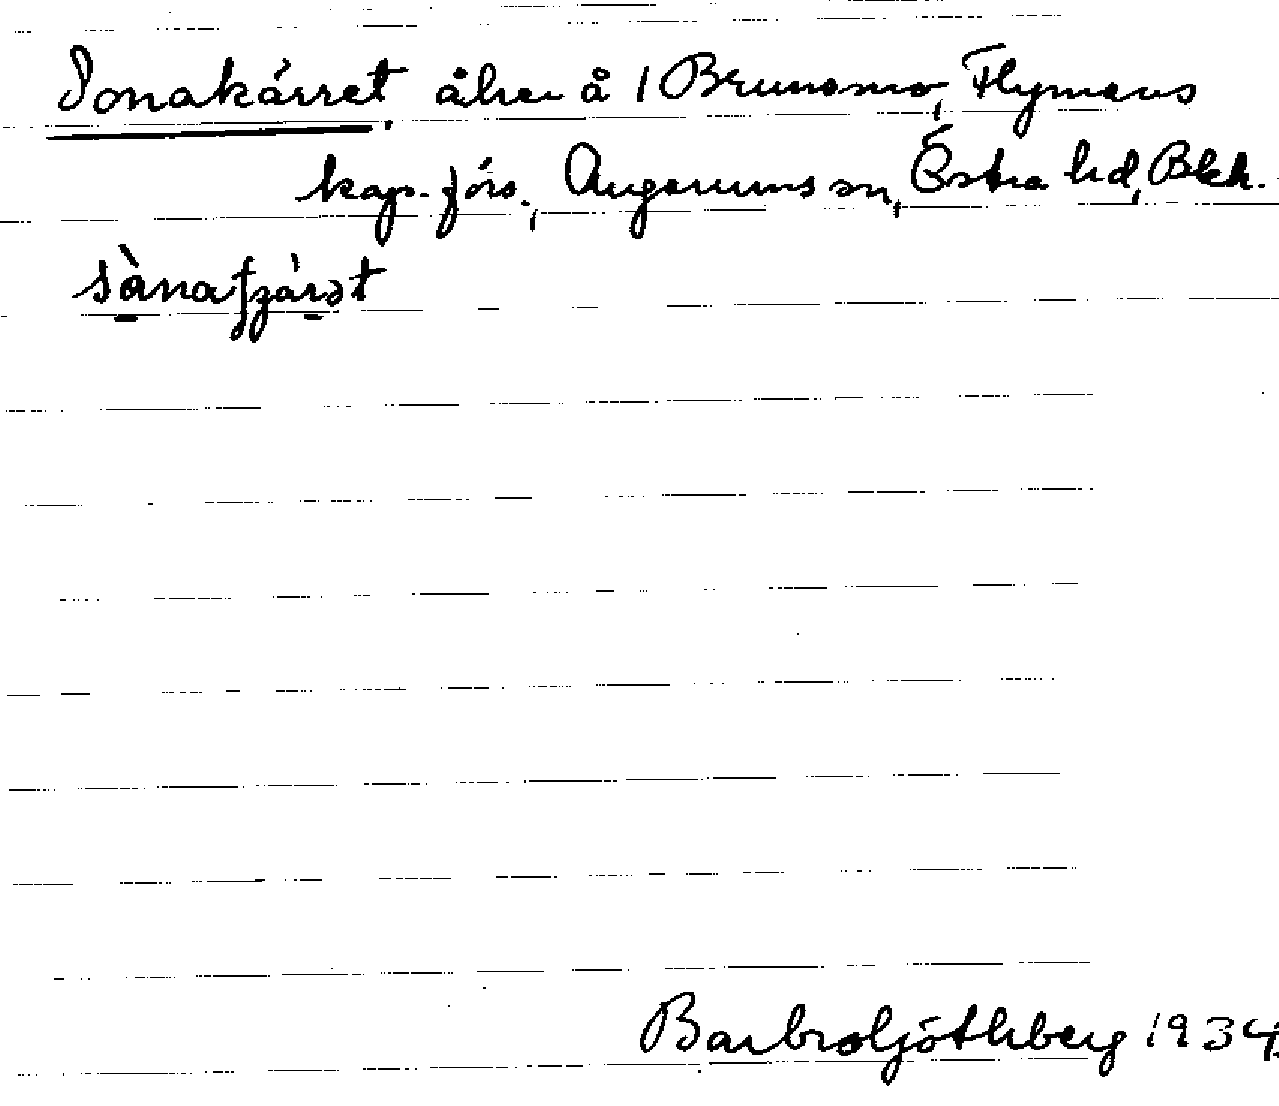 Sonakärret, åker å 1 Brunsmo, Flymens
kap. förs., Augerums sn, Östra hd, Blek.
sànafjzárət
Barbro Ljöthberg 1934.